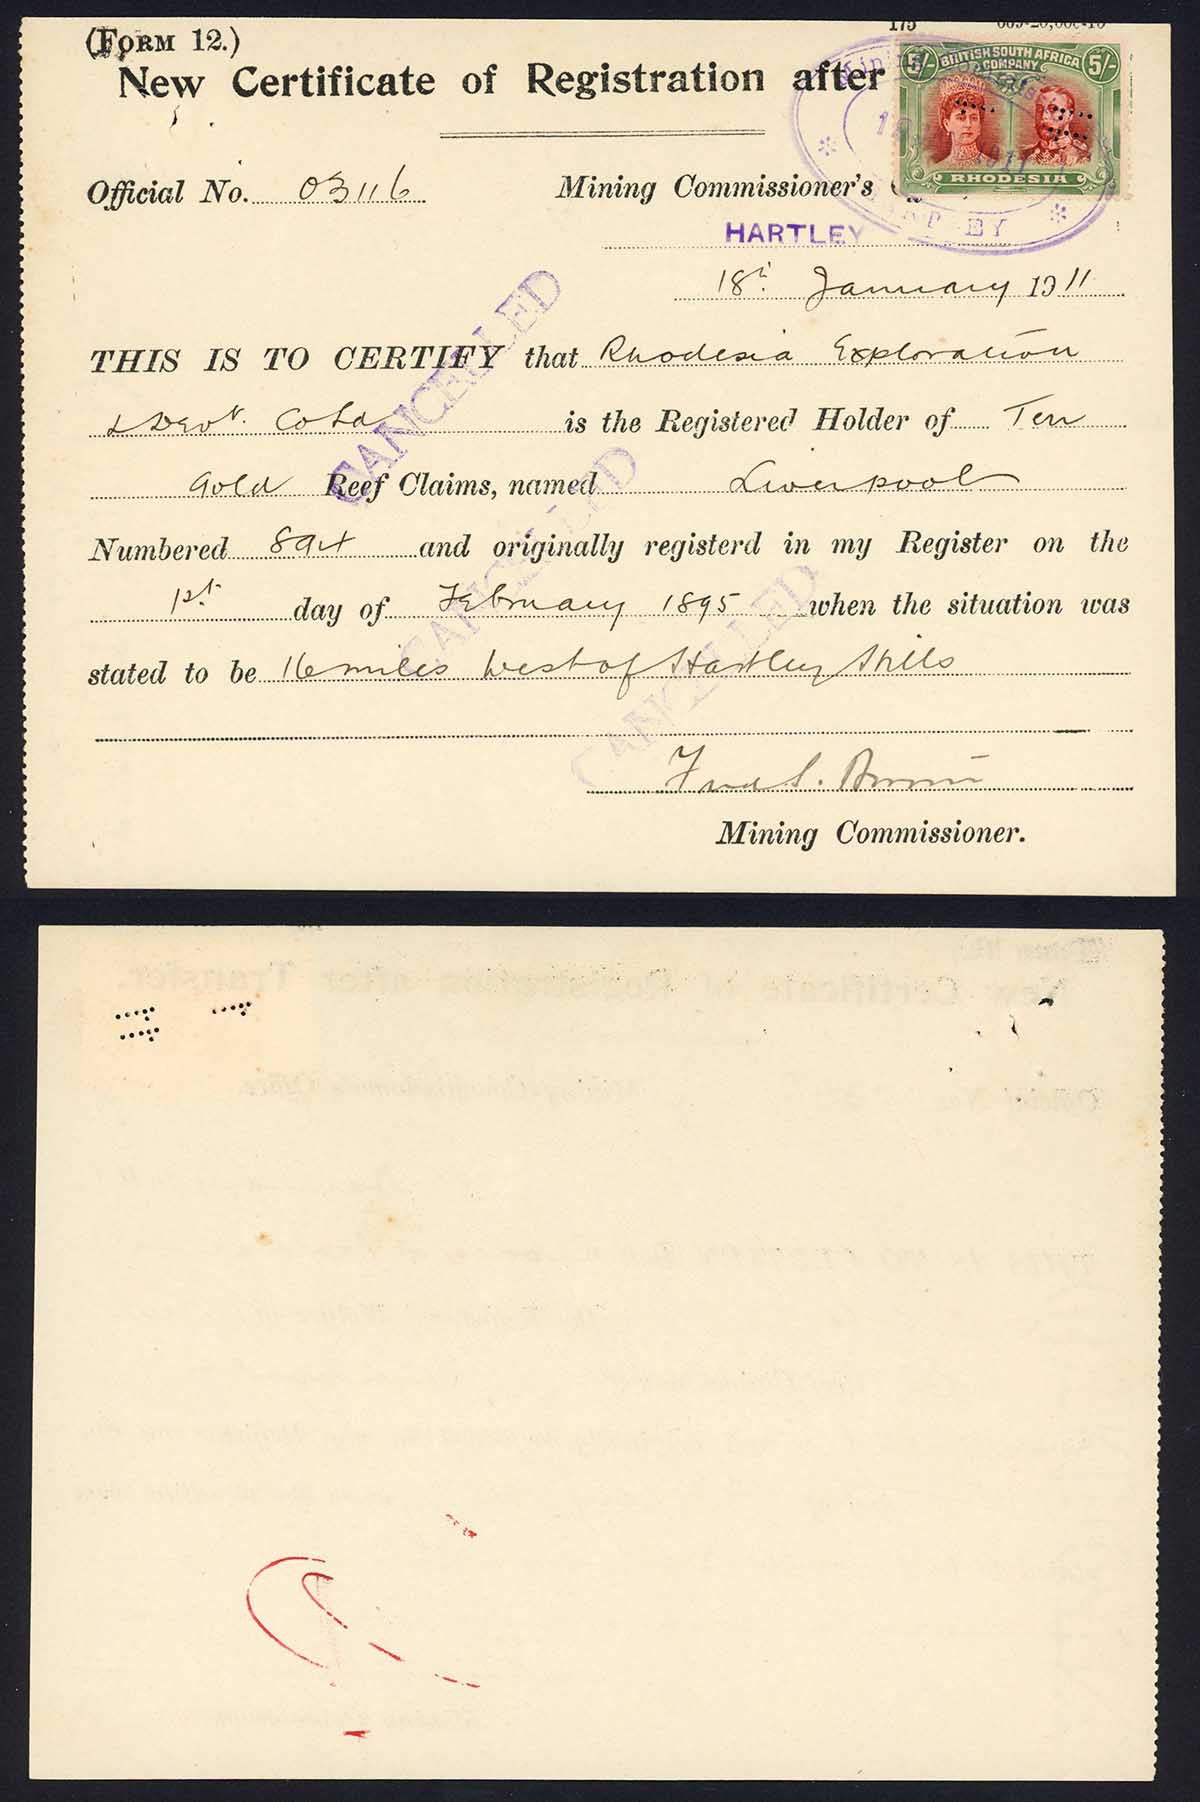 175 009-20,000-10
(FORM 12.)
New Certificate of Registration after
5/- BRITISH SOUTH AFRICA COMPANY 5/-
RHODESIA
Official No. 03116 Mining Commissioner's O
HARTLEY
18th January 1911
THIS IS TO CERTIFY that Rhodesia Exploration
& Devt. Co Ld is the Registered Holder of Ten
Gold Reef Claims, named Liverpool
Numbered 894 and originally registerd in my Register on the
1st day of February 1895 when the situation was
stated to be 16 miles West of Hartley Hills
CANCELLED
CANCELLED
CANCELLED
Mining Commissioner.